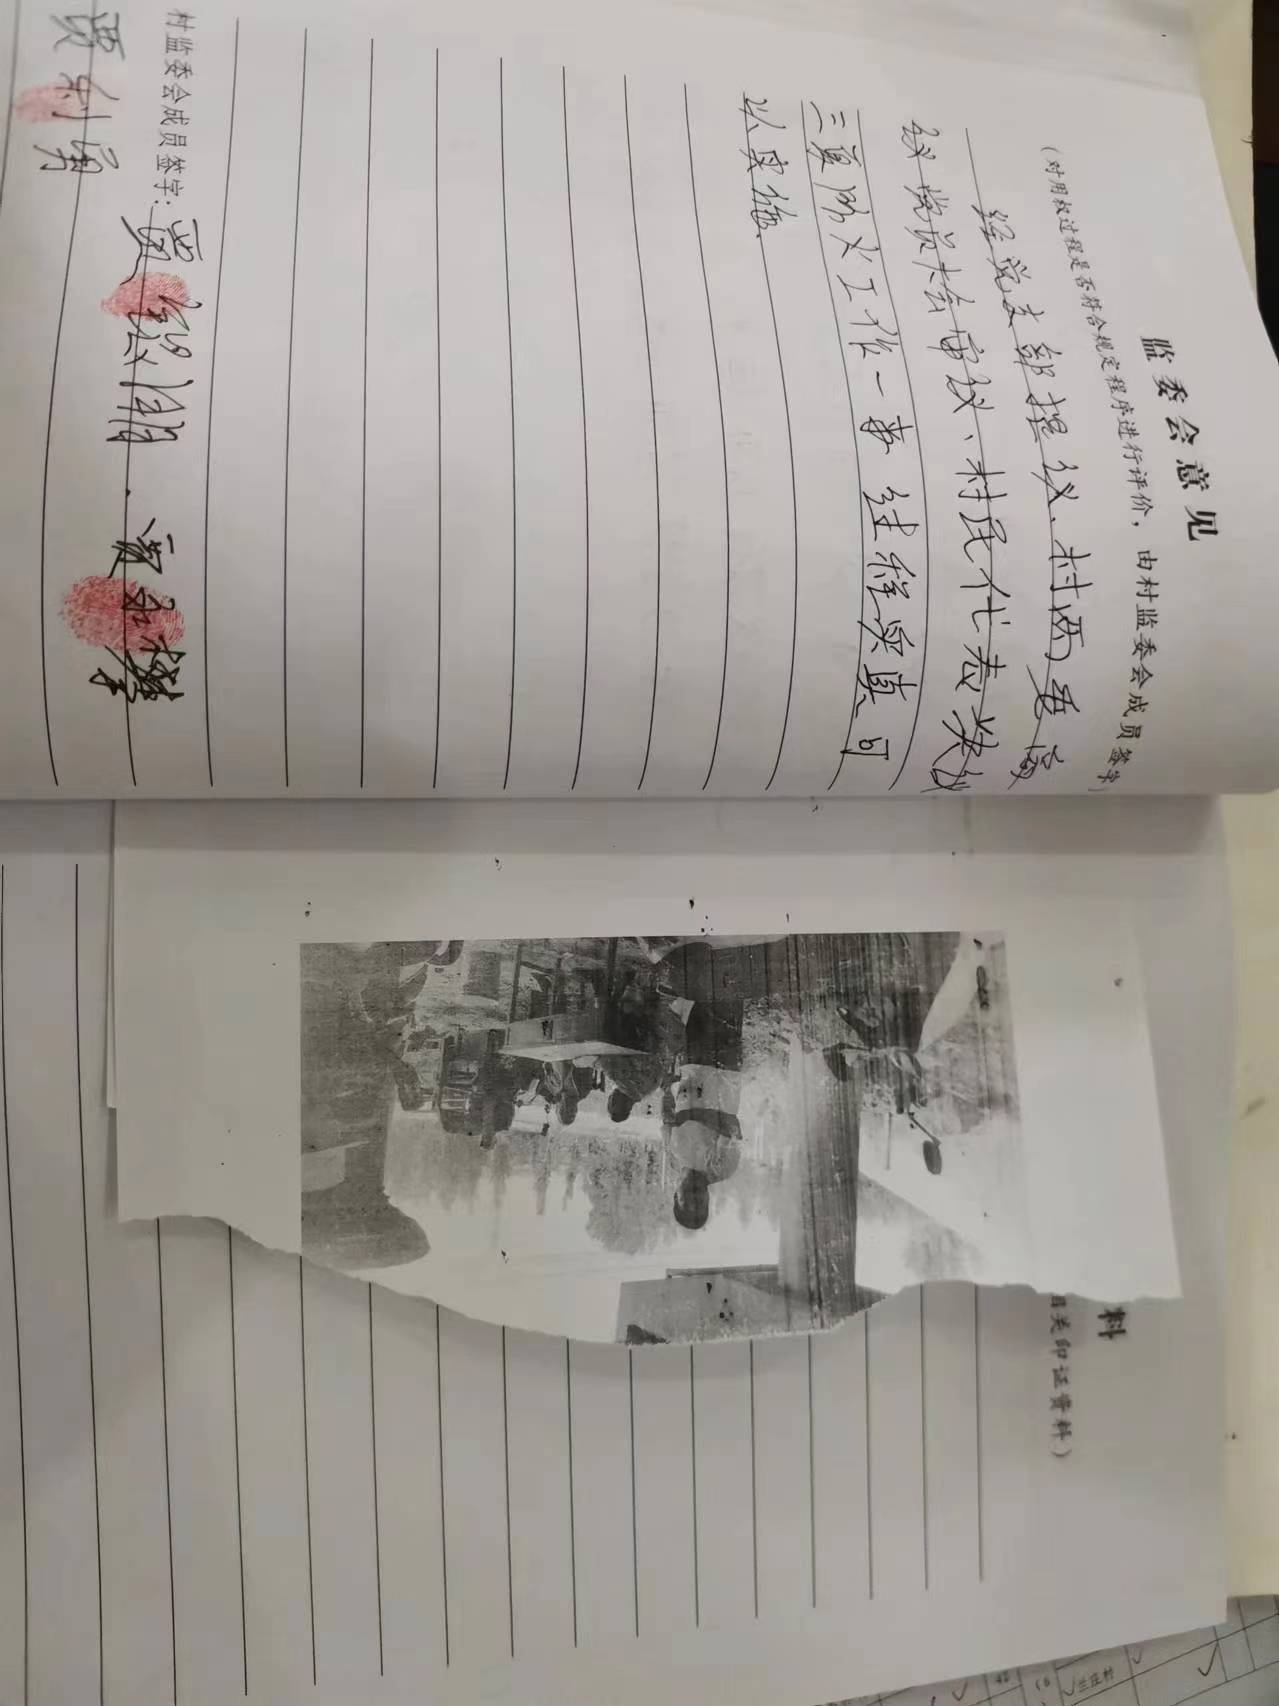 监委会意见
(对用权过程是否符合规定程序进行评价，由村监委会成员签字)
经党支部提议、村两委商
议、党员大会审议、村民代表决议
三夏防火工作一事
以实施.
村监委会成员签字：贾
贾利勇
料
相关印证资料)